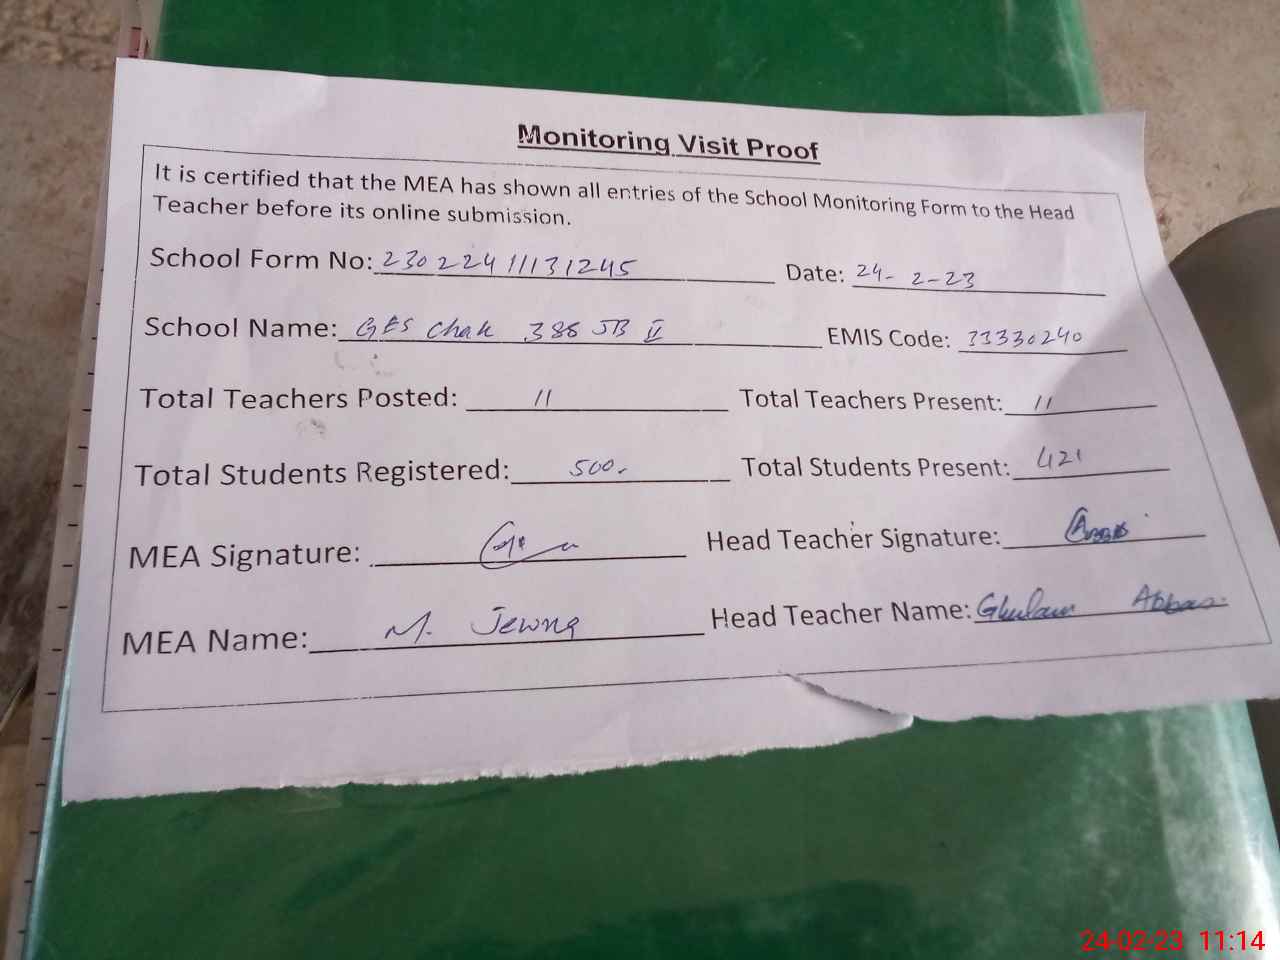 Monitoring Visit Proof
It is certified that the MEA has shown all entries of the School Monitoring Form to the Head
Teacher before its online submission.
School Form No: 23022411131245 Date: 24-2-23
School Name: GES Chak 386 JB II EMIS Code: 33330240
Total Teachers Posted: 11 Total Teachers Present: 11
Total Students Registered: 500. Total Students Present: 421
MEA Signature: Head Teacher Signature:
MEA Name: M. Head Teacher Name: Ghulam Abbas
24-02-23 11:14